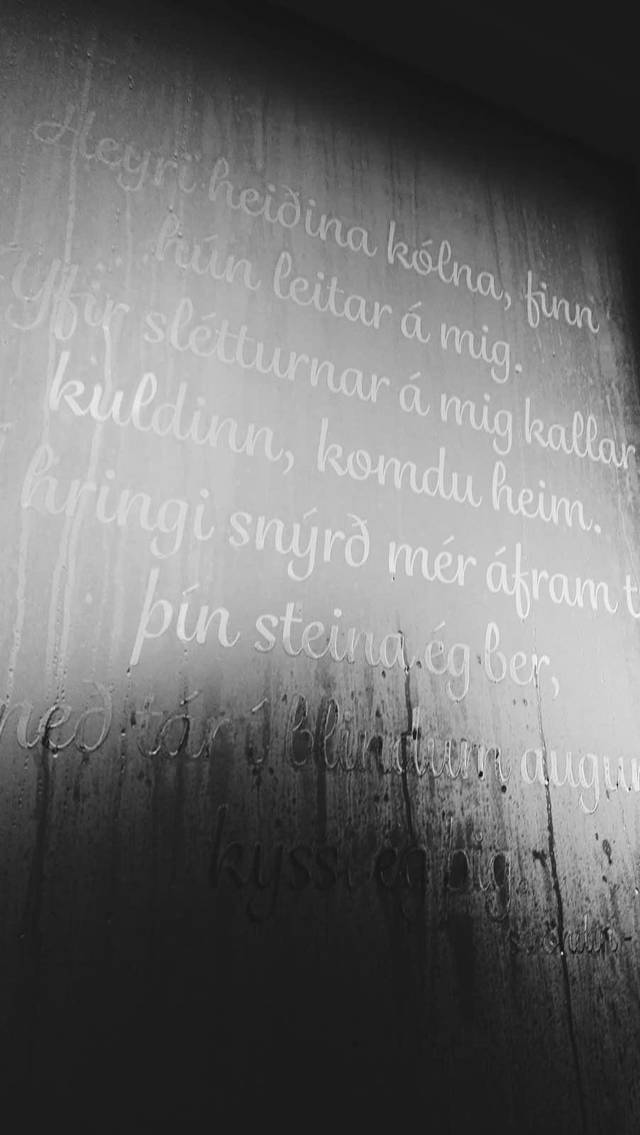 Heyri heiðina kólna, finn
hún leitar á mig.
Yfir slétturnar á mig kallar
kuldinn, komdu heim.
hringi snýrð mér áfram t
þín steina ég ber,
með tár í blindum augum
kyssi ég þig.